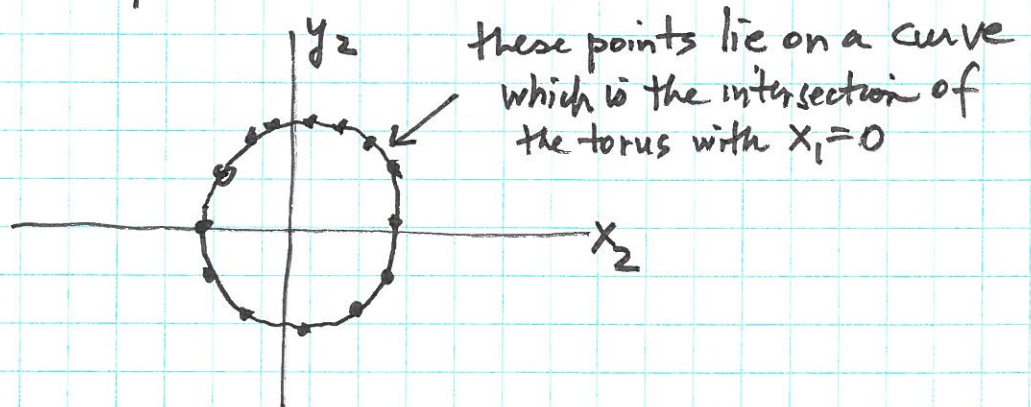 y₂
these points lie on a curve
which is the intersection of
the torus with x₁=0
x₂